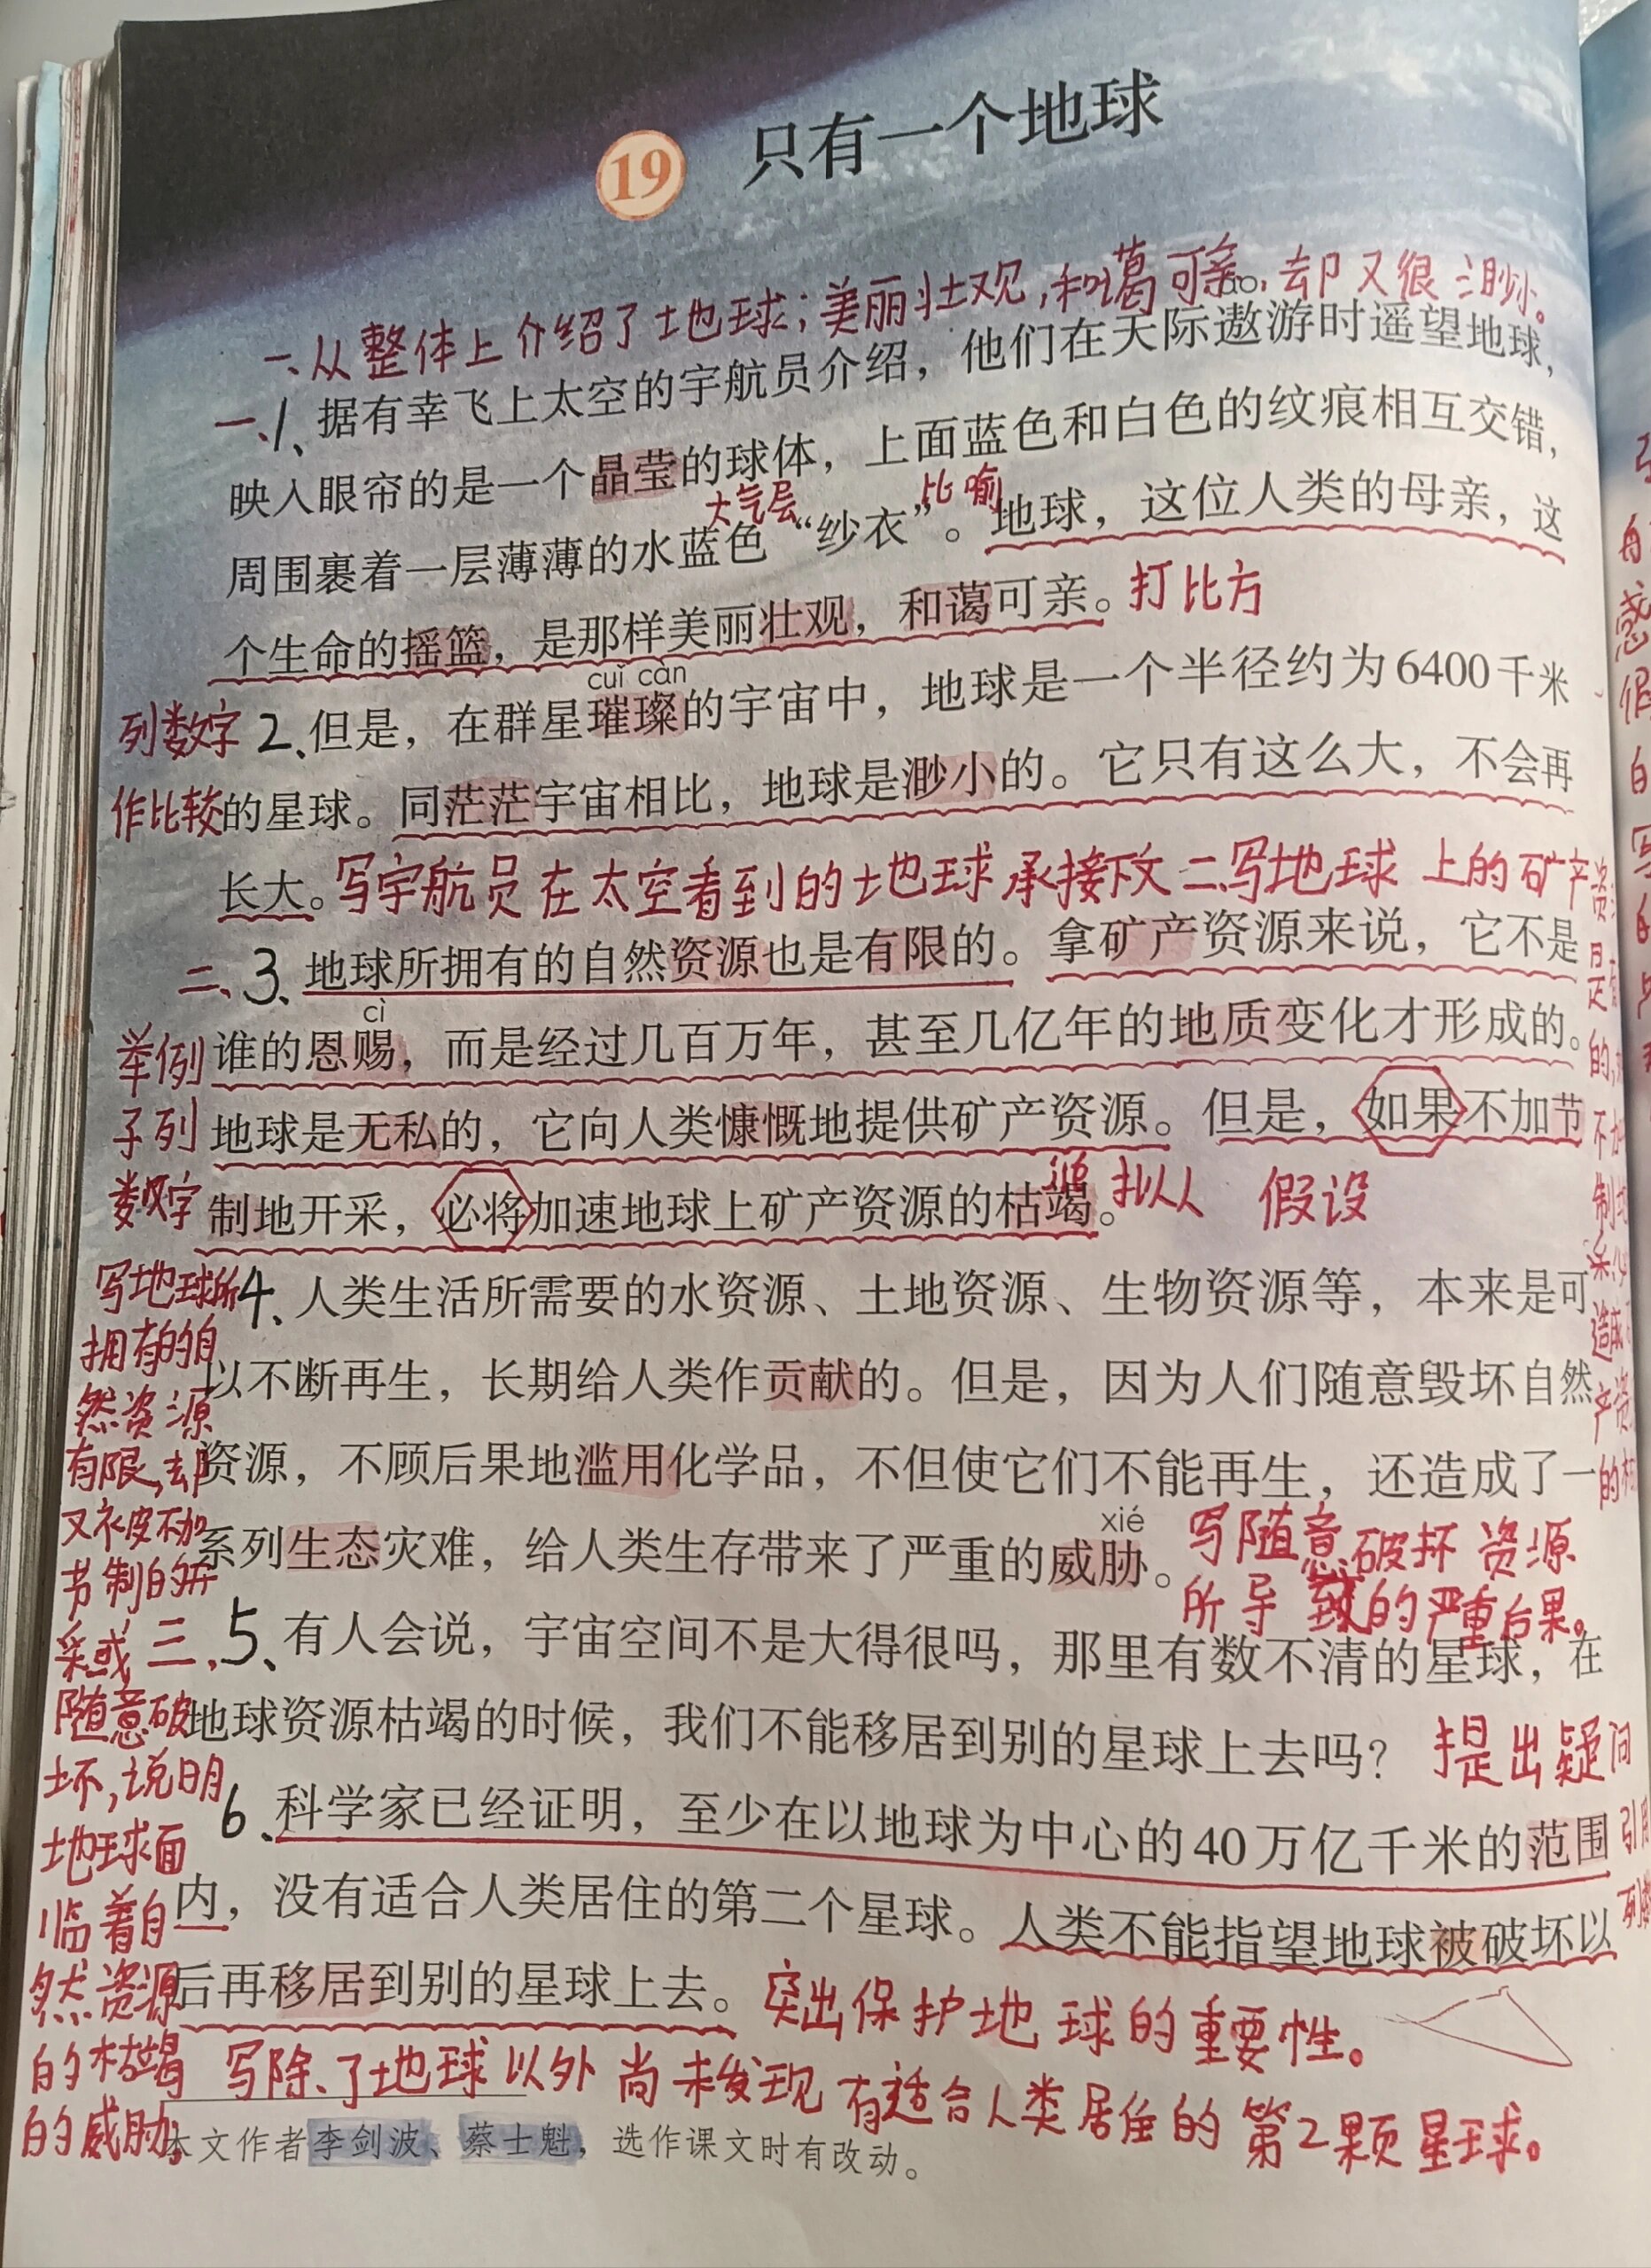 19 只有一个地球
一、从整体上介绍了地球;美丽壮观,和蔼可亲,却又很渺小。
一、1、据有幸飞上太空的宇航员介绍，他们在天际遨游时遥望地球，
映入眼帘的是一个晶莹的球体，上面蓝色和白色的纹痕相互交错，
大气层 比喻
周围裹着一层薄薄的水蓝色“纱衣”。地球，这位人类的母亲，这
个生命的摇篮，是那样美丽壮观，和蔼可亲。打比方
cuǐ càn
列数字 2、但是，在群星璀璨的宇宙中，地球是一个半径约为6400千米
作比较的星球。同茫茫宇宙相比，地球是渺小的。它只有这么大，不会再
长大。写宇航员在太空看到的地球 承接下文 二、写地球上的矿产
二、3、地球所拥有的自然资源也是有限的。拿矿产资源来说，它不是
cì
举例 谁的恩赐，而是经过几百万年，甚至几亿年的地质变化才形成的。
子列 地球是无私的，它向人类慷慨地提供矿产资源。但是，如果不加节
数字 制地开采，必将加速地球上矿产资源的枯竭。拟人 假设
写地球所 4、人类生活所需要的水资源、土地资源、生物资源等，本来是可
拥有的自
以不断再生，长期给人类作贡献的。但是，因为人们随意毁坏自然
然资源
有限,却 资源，不顾后果地滥用化学品，不但使它们不能再生，还造成了一
xié
又被不加 系列生态灾难，给人类生存带来了严重的威胁。写随意破坏资源
节制的开 所导致的严重后果。
采或 三、5、有人会说，宇宙空间不是大得很吗，那里有数不清的星球，在
随意破 地球资源枯竭的时候，我们不能移居到别的星球上去吗？ 提出疑问
坏,说明 6、科学家已经证明，至少在以地球为中心的40万亿千米的范围
地球面
临着自 内，没有适合人类居住的第二个星球。人类不能指望地球被破坏以
然资源 后再移居到别的星球上去。突出保护地球的重要性。
的枯竭 写除了地球以外尚未发现有适合人类居住的第2颗星球。
的威胁; 本文作者李剑波、蔡士魁，选作课文时有改动。